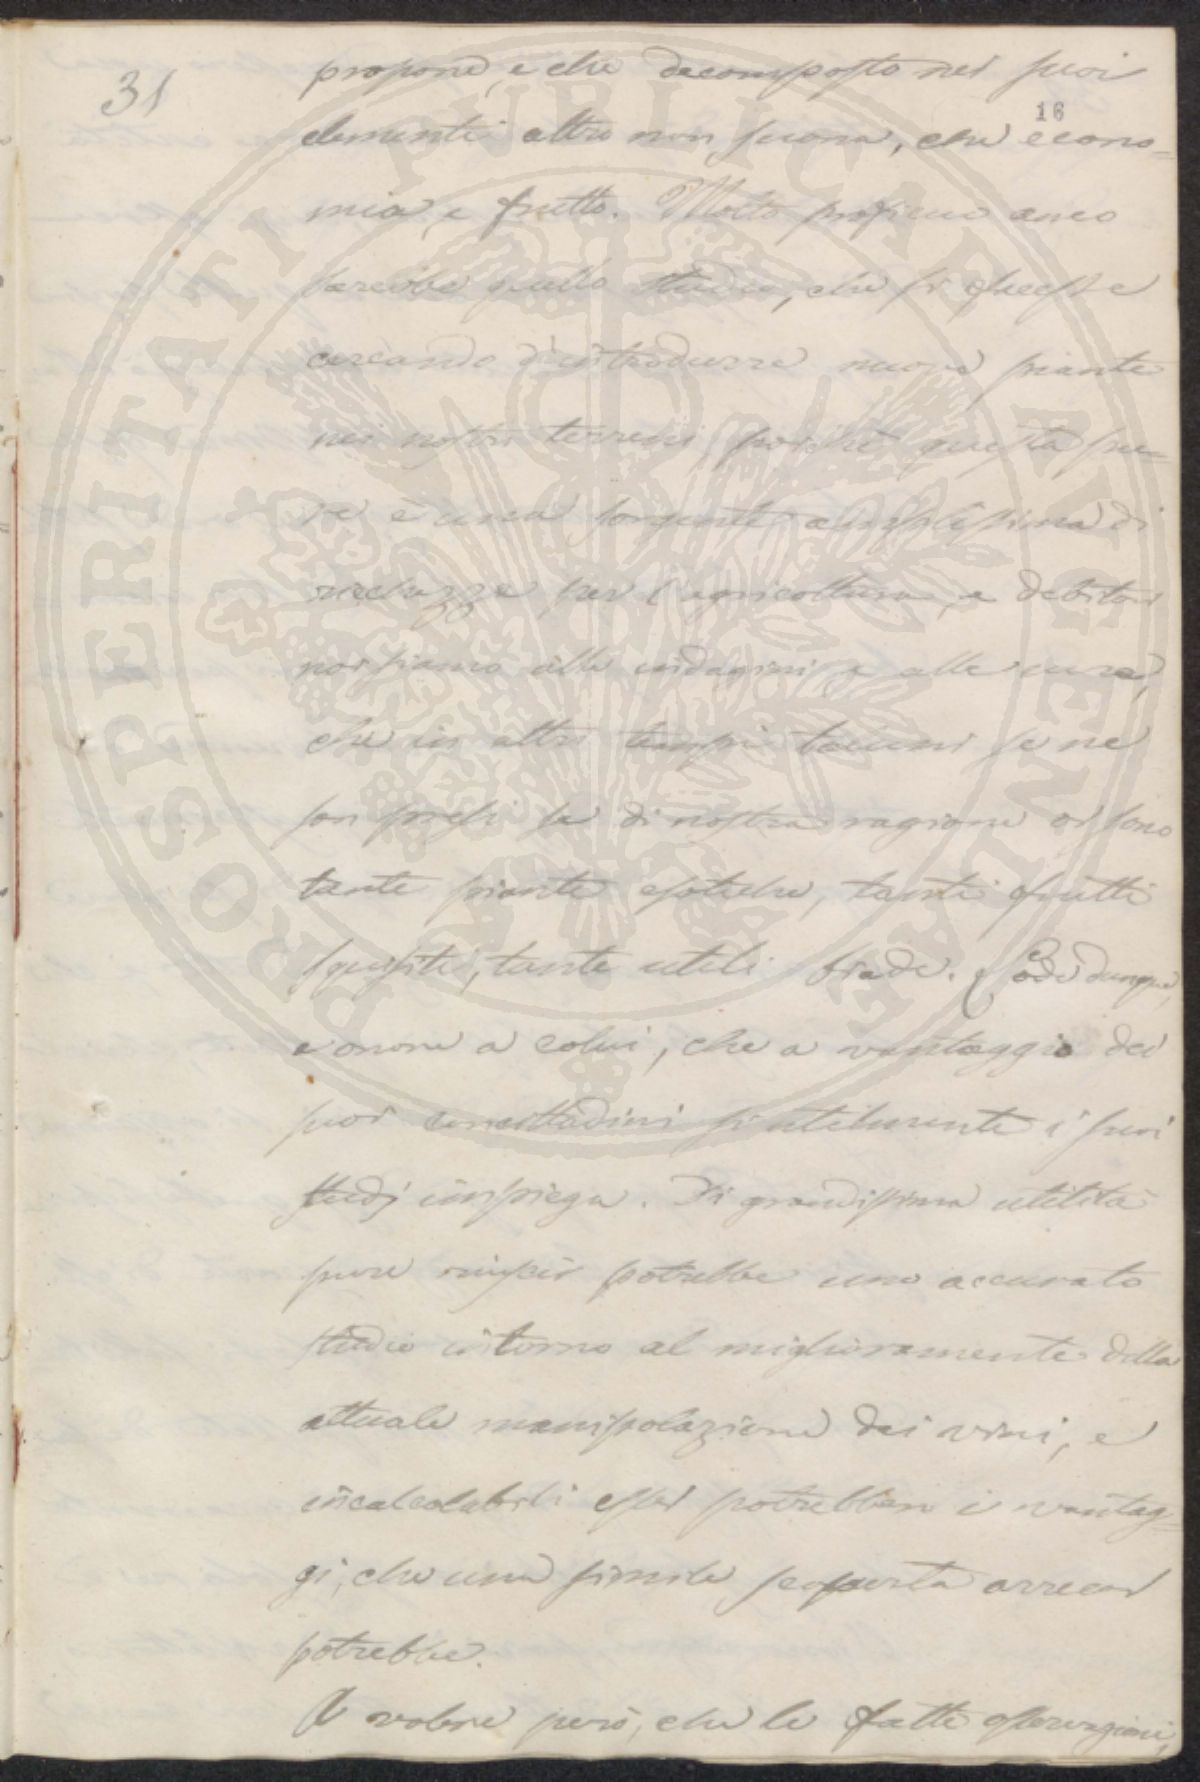 31
propone, e che decomposto nei suoi
16
elementi altro non suona, che econo=
mia, e frutto. Molto proficuo anco
sarebbe quello studio, che si facesse
cercando d'introdurre nuove piante
nei nostri terreni, poichè questa pu=
re è una sorgente amplissima di
ricchezze per l'agricoltura, e debitori
noi siamo alle indagini, e alle cure,
che in altri tempi taluni se ne
son presi se di nostra ragione or sono
tante piante esotiche, tanti frutti
squisiti, tante utili biade. Lode dunque,
e onore a colui, che a vantaggio dei
suoi concittadini sì utilmente i suoi
studj impiega. Di grandissima utilità
pure riuscir potrebbe uno accurato
studio intorno al miglioramento della
attuale manipolazione dei vini, e
incalcolabili esser potrebbero i vantag=
gi, che una simile scoperta arrecar
potrebbe.
A volere però, che le fatte osservazioni,
PROSPERITATI PUBLICAE AUGENDAE